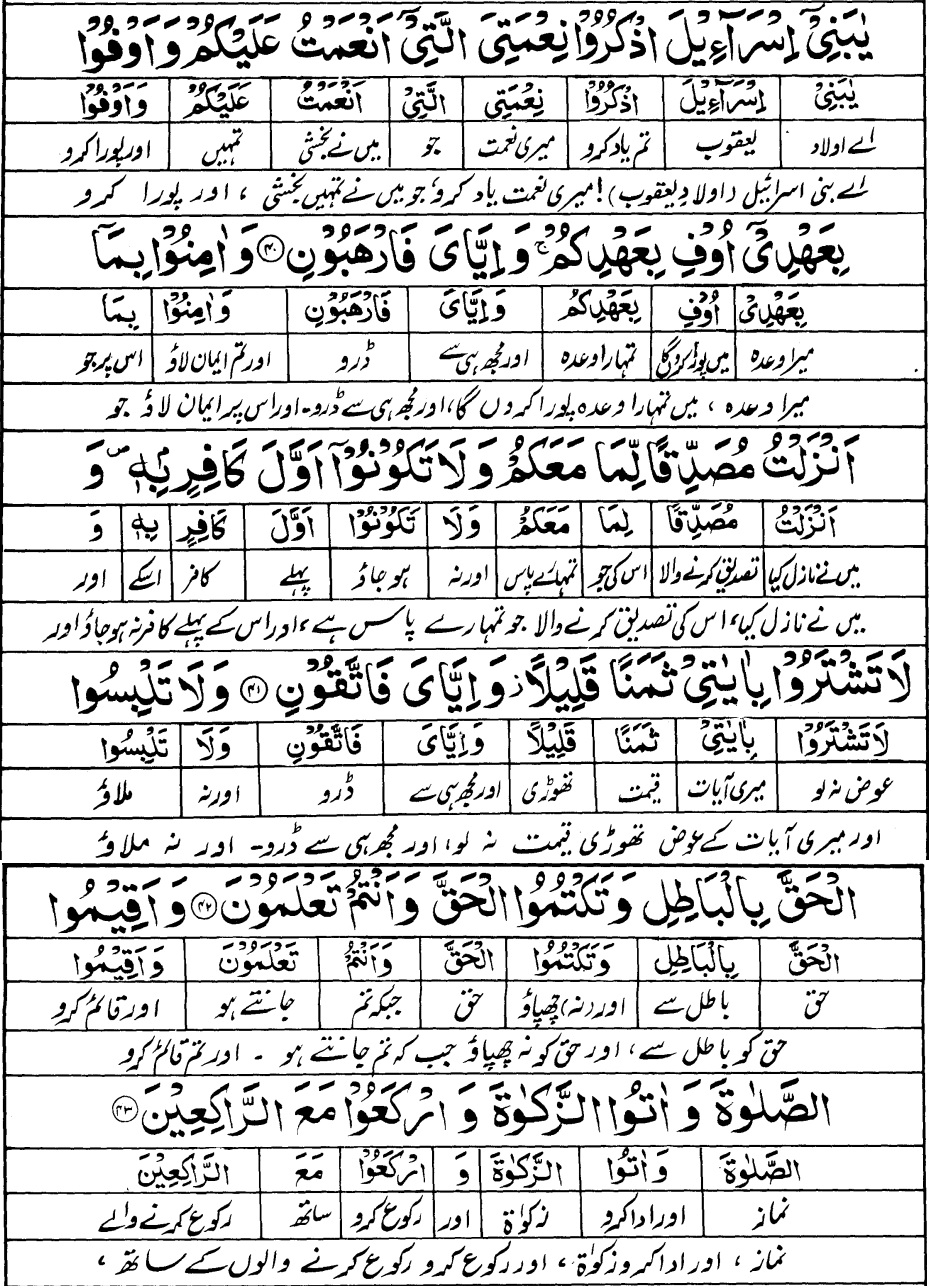 يٰبَنِيْٓ اِسْرَآءِيْلَ اذْكُرُوْا نِعْمَتِيَ الَّتِيْٓ اَنْعَمْتُ عَلَيْكُمْ وَاَوْفُوْا
يٰبَنِيْٓ اِسْرَآءِيْلَ اذْكُرُوْا نِعْمَتِيَ الَّتِيْٓ اَنْعَمْتُ عَلَيْكُمْ وَاَوْفُوْا
اے اولاد یعقوب تم یاد کرو میری نعمت جو میں نے بخشی تمہیں اور پورا کرو
اے بنی اسرائیل (اولادِ یعقوب)! میری نعمت یاد کرو، جو میں نے تمہیں بخشی، اور پورا کرو
بِعَهْدِيْٓ اُوْفِ بِعَهْدِكُمْ ۚ وَاِيَّايَ فَارْهَبُوْنِ ﴿۴۰﴾ وَاٰمِنُوْا بِمَآ
بِعَهْدِيْٓ اُوْفِ بِعَهْدِكُمْ وَاِيَّايَ فَارْهَبُوْنِ وَاٰمِنُوْا بِمَا
میرا وعدہ میں پورا کروں گا تمہارا وعدہ اور مجھ ہی سے ڈرو اور تم ایمان لاؤ اس پر جو
میرا وعدہ، میں تمہارا وعدہ پورا کروں گا، اور مجھ ہی سے ڈرو۔ اور اس پر ایمان لاؤ جو
اَنْزَلْتُ مُصَدِّقًا لِّمَا مَعَكُمْ وَلَا تَكُوْنُوْٓا اَوَّلَ كَافِرٍۭ بِهٖ ۖ وَ
اَنْزَلْتُ مُصَدِّقًا لِمَا مَعَكُمْ وَلَا تَكُوْنُوْٓا اَوَّلَ كَافِرٍ بِهٖ وَ
میں نے نازل کیا تصدیق کرنے والا اس کی جو تمہارے پاس اور نہ ہو جاؤ پہلے کافر اسکے اور
میں نے نازل کیا، اس کی تصدیق کرنے والا جو تمہارے پاس ہے، اور اس کے پہلے کافر نہ ہو جاؤ اور
لَا تَشْتَرُوْا بِاٰيٰتِيْ ثَمَنًا قَلِيْلًا ز وَاِيَّايَ فَاتَّقُوْنِ ﴿۴۱﴾ وَلَا تَلْبِسُوا
لَا تَشْتَرُوْا بِاٰيٰتِيْ ثَمَنًا قَلِيْلًا وَاِيَّايَ فَاتَّقُوْنِ وَلَا تَلْبِسُوا
عوض نہ لو میری آیات قیمت تھوڑی اور مجھ ہی سے ڈرو اور نہ ملاؤ
اور میری آیات کے عوض تھوڑی قیمت نہ لو، اور مجھ ہی سے ڈرو۔ اور نہ ملاؤ
الْحَقَّ بِالْبَاطِلِ وَتَكْتُمُوا الْحَقَّ وَاَنْتُمْ تَعْلَمُوْنَ ﴿۴۲﴾ وَاَقِيْمُوا
الْحَقَّ بِالْبَاطِلِ وَتَكْتُمُوا الْحَقَّ وَاَنْتُمْ تَعْلَمُوْنَ وَاَقِيْمُوا
حق باطل سے اور (نہ) چھپاؤ حق جبکہ تم جانتے ہو اور قائم کرو
حق کو باطل سے، اور حق کو نہ چھپاؤ جب کہ تم جانتے ہو ۔ اور تم قائم کرو
الصَّلٰوةَ وَاٰتُوا الزَّكٰوةَ وَارْكَعُوْا مَعَ الرَّاكِعِيْنَ ﴿۴۳﴾
الصَّلٰوةَ وَاٰتُوا الزَّكٰوةَ وَ ارْكَعُوْا مَعَ الرَّاكِعِيْنَ
نماز اور ادا کرو زکوٰۃ اور رکوع کرو ساتھ رکوع کرنے والے
نماز، اور ادا کرو زکوٰۃ، اور رکوع کرو رکوع کرنے والوں کے ساتھ،